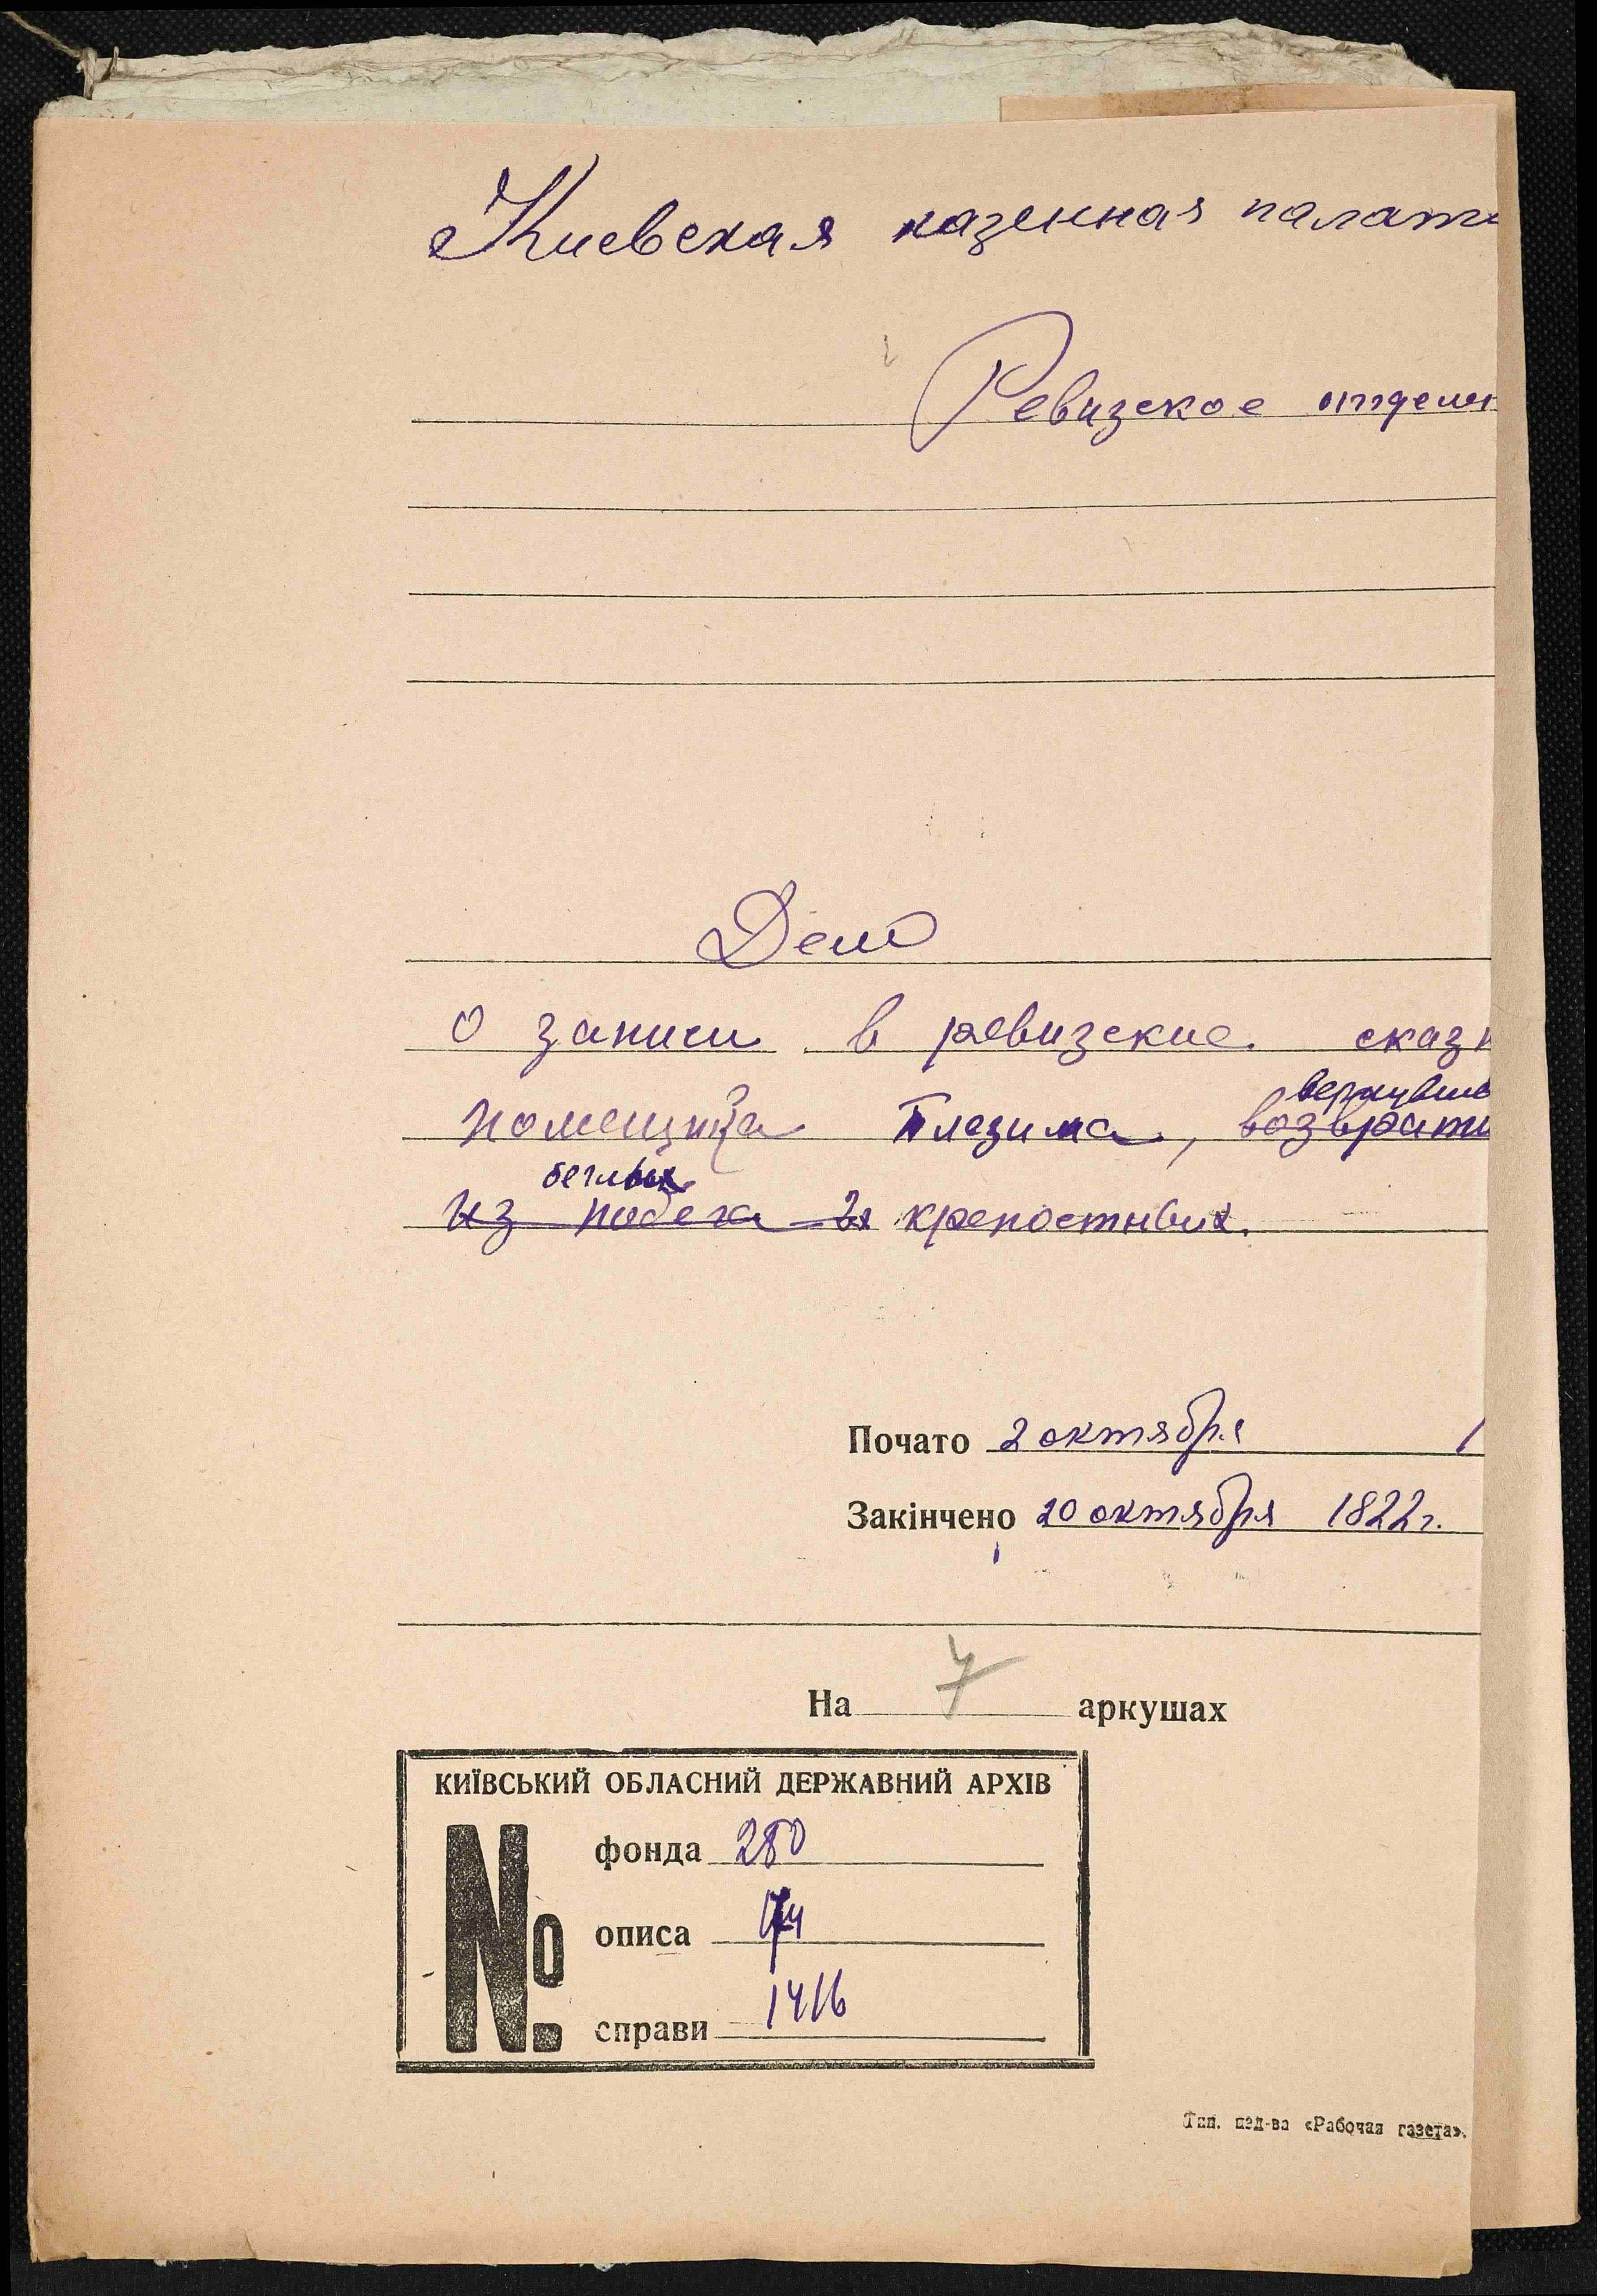 Киевская казенная палат
Ревизское отделе
Дело
о записи в ревизские сказк
вернувш
помещика Плезима, возврати
беглых
из побега 2х крепостных.
Почато 2 октября 1
Закінчено 20 октября 1822г.
На 7 аркушах
КИЇВСЬКИЙ ОБЛАСНИЙ ДЕРЖАВНИЙ АРХІВ
№
фонда 280
описа 174
справи 1416
Тип. изд-ва «Рабочая газета».